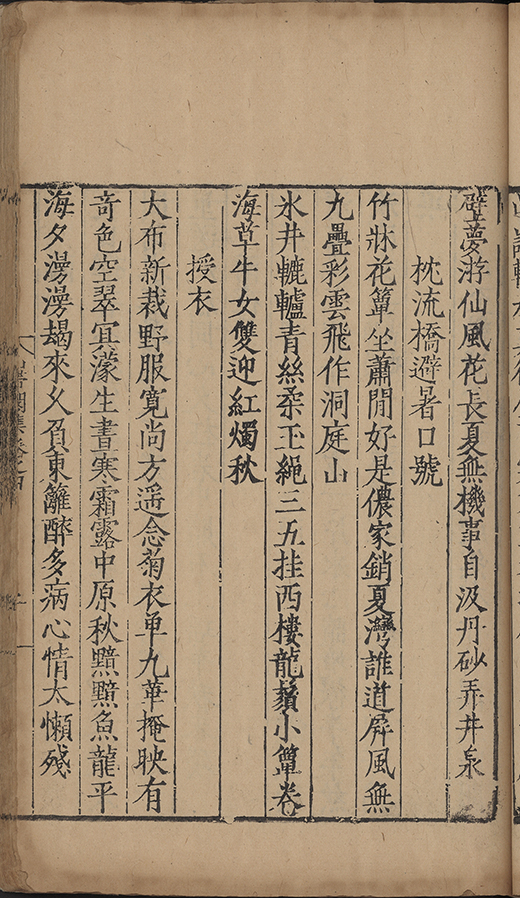 壁夢游仙風花長夏無機事自汲丹砂弄井泉
枕流橋避暑口號
竹牀花簟坐蕭閒好是儂家銷夏灣誰道屏風無
九疊彩雲飛作洞庭山
氷井轆轤青絲柔玉䋲三五挂西樓龍鬚小簟卷
海草牛女雙迎紅燭秋
授衣
大布新裁野服寬尚方遥念菊衣单九華掩映有
奇色空翠冥濛生晝寒霜露中原秋黯黯魚龍平
海夕漫漫朅來久負東籬醉多病心情太懶殘